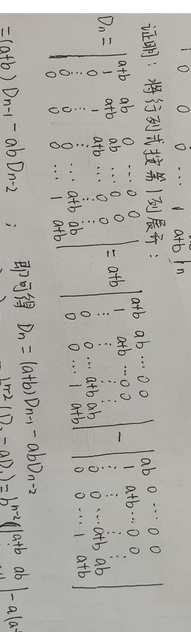 1 0 0 0 … 1 a+b |n
证明：将行列式按第1列展开：
Dn = | a+b ab 0 … 0 0
1 a+b ab … 0 0
0 1 a+b … 0 0
⋮ ⋮ ⋮ ⋮ ⋮
0 0 0 … a+b ab
0 0 0 … 1 a+b | = a+b | a+b ab … 0 0
1 a+b … 0 0
⋮ ⋮ ⋮ ⋮
0 0 … a+b ab
0 0 … 1 a+b | − | ab 0 … 0 0
1 a+b … 0 0
⋮ ⋮ ⋮ ⋮
0 0 … a+b ab
0 0 … 1 a+b |
=(a+b) Dn-1 - ab Dn-2 ; 即可得 Dn = (a+b)Dn-1 - abDn-2
n-2 (D2 - aD1) = b^n-2 ( | a+b ab | - a(a+